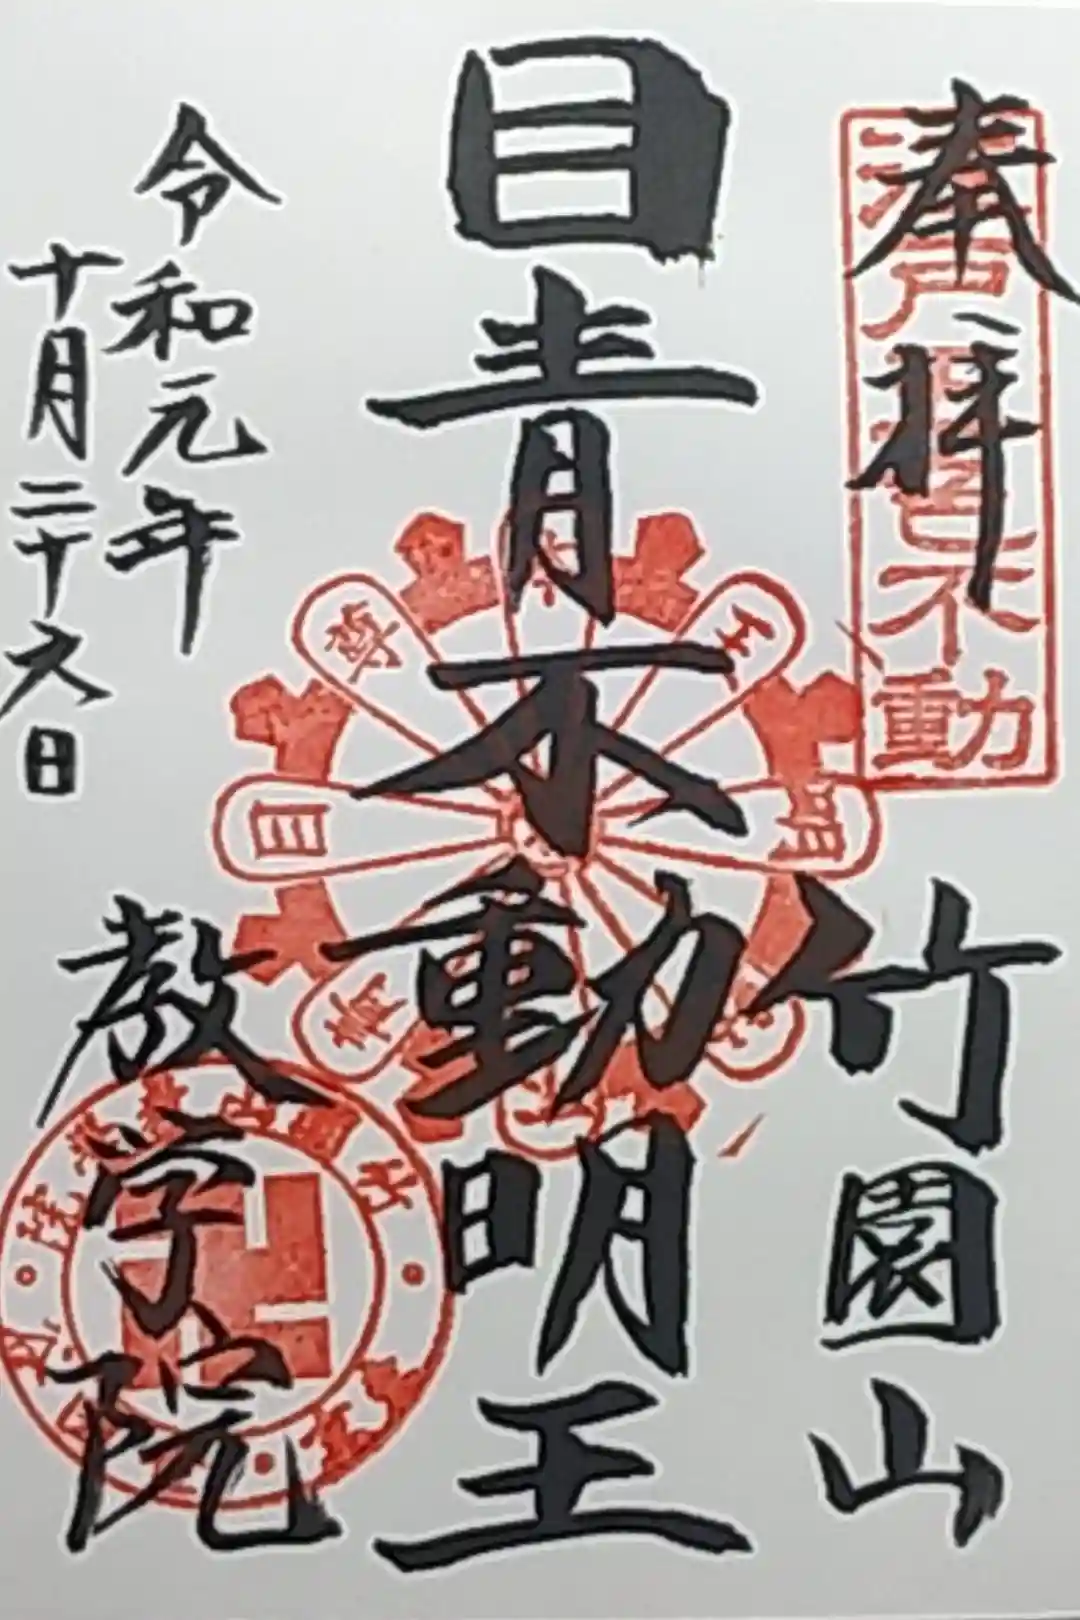 奉拝
江戸五色不動
竹園山
目青不動明王
令和元年
十月二十六日
教学院